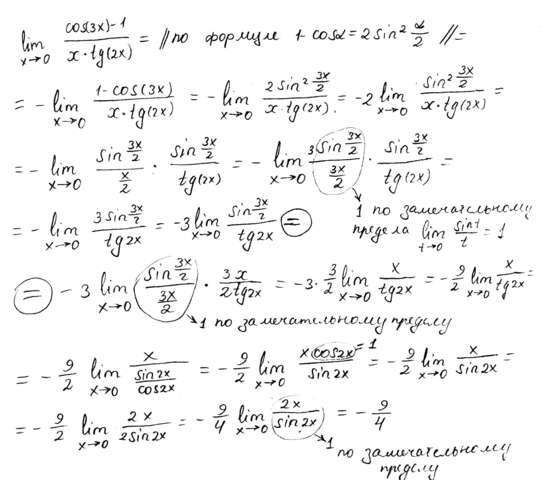 lim x→0 (cos(3x)-1)/(x·tg(2x)) = //по формуле 1-cosα = 2sin² α/2 //=
= -lim x→0 (1-cos(3x))/(x·tg(2x)) = -lim x→0 (2sin² 3x/2)/(x·tg(2x)) = -2 lim x→0 (sin² 3x/2)/(x·tg(2x)) =
= -lim x→0 (sin 3x/2)/(x/2) · (sin 3x/2)/(tg(2x)) = -lim x→0 (3 sin 3x/2)/(3x/2) · (sin 3x/2)/(tg(2x)) =
1 по замечательному
предела lim t→0 sint/t = 1
= -lim x→0 (3 sin 3x/2)/(tg2x) = -3 lim x→0 (sin 3x/2)/(tg2x) =
= -3 lim x→0 (sin 3x/2)/(3x/2) · 3x/(2tg2x) = -3· 3/2 lim x→0 x/(tg2x) = -9/2 lim x→0 x/(tg2x) =
1 по замечательному пределу
= -9/2 lim x→0 x/(sin2x/cos2x) = -9/2 lim x→0 (x cos2x)/(sin2x) = -9/2 lim x→0 x/(sin2x) =
=1
= -9/2 lim x→0 2x/(2sin2x) = -9/4 lim x→0 2x/(sin2x) = -9/4
1 по замечательному
пределу